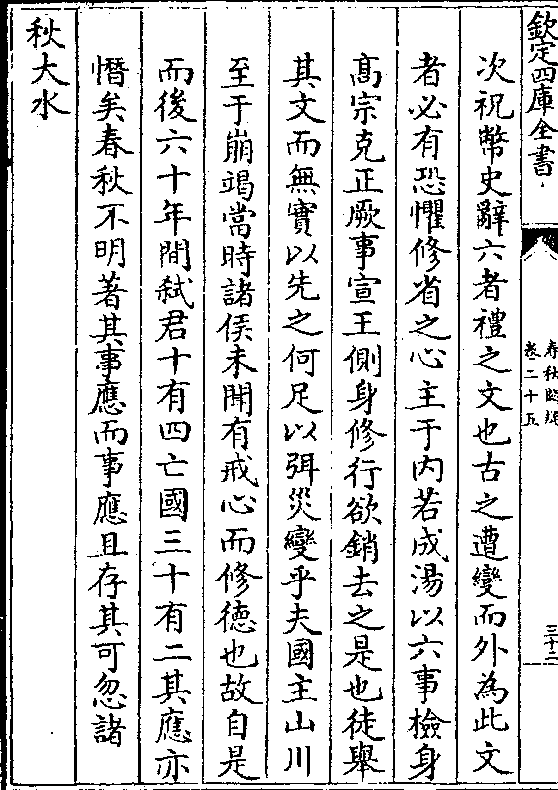 欽定四庫全書
春秋闕疑
卷二十五
三十二
次祝幣史辭六者禮之文也古之遭變而外為此文
者必有恐懼修省之心主于内若成湯以六事檢身
髙宗克正厥事宣王側身修行欲銷去之是也徒舉
其文而無實以先之何足以弭災變乎夫國主山川
至于崩竭當時諸侯未聞有戒心而修徳也故自是
而後六十年間弑君十有四亡國三十有二其應亦
憯矣春秋不明著其事應而事應且存其可忽諸
秋大水